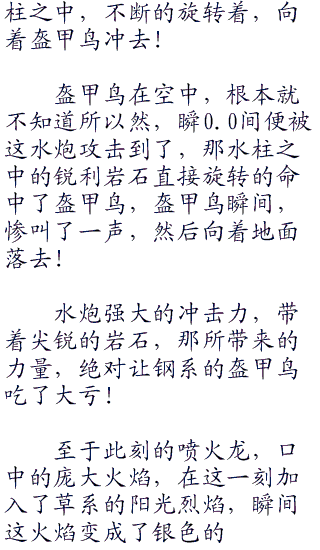 柱之中，不断的旋转着，向
着盔甲鸟冲去！
盔甲鸟在空中，根本就
不知道所以然，瞬0.0间便被
这水炮攻击到了，那水柱之
中的锐利岩石直接旋转的命
中了盔甲鸟，盔甲鸟瞬间，
惨叫了一声，然后向着地面
落去！
水炮强大的冲击力，带
着尖锐的岩石，那所带来的
力量，绝对让钢系的盔甲鸟
吃了大亏！
至于此刻的喷火龙，口
中的庞大火焰，在这一刻加
入了草系的阳光烈焰，瞬间
这火焰变成了银色的